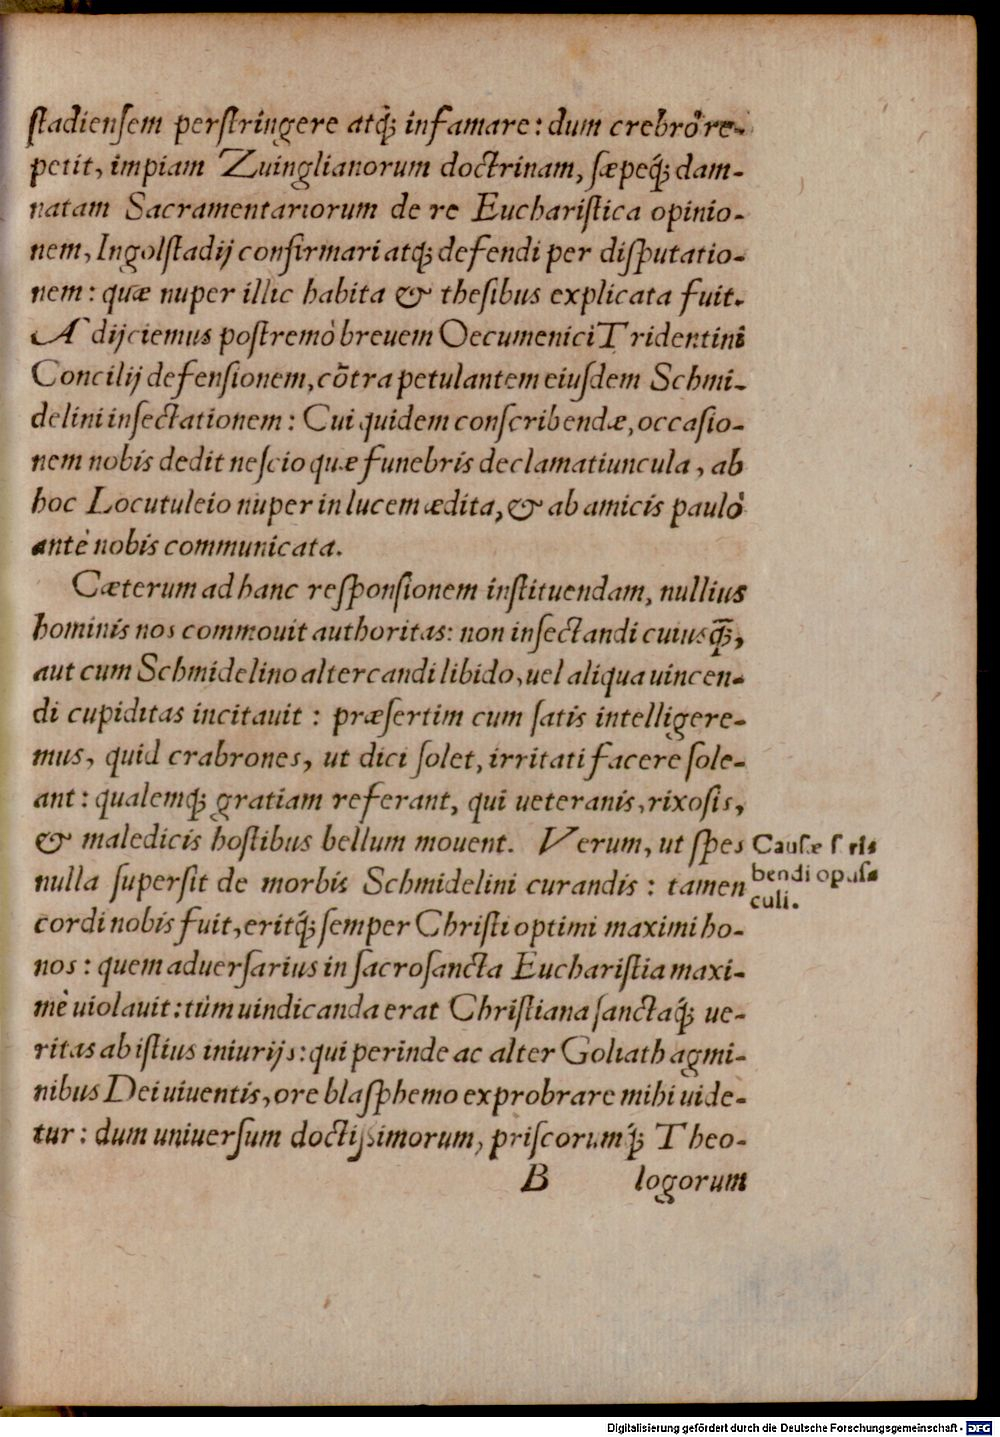 ſtadienſem perſtringere atq́; infamare: dum crebrò re-
petit, impiam Zuinglianorum doctrinam, ſæpeq́; dam-
natam Sacramentariorum de re Euchariſtica opinio-
nem, Ingolſtadij confirmari atq́; defendi per diſputatio-
nem: quæ nuper illic habita & theſibus explicata fuit.
Adijciemus poſtremò breuem Oecumenici Tridentini
Concilij defenſionem, cõtra petulantem eiuſdem Schmi-
delini inſectationem: Cui quidem conſcribendæ, occaſio-
nem nobis dedit neſcio quæ funebris declamatiuncula, ab
hoc Locutuleio nuper in lucem ædita, & ab amicis paulò
antè nobis communicata.
Cæterum ad hanc reſponſionem inſtituendam, nullius
hominis nos commouit authoritas: non inſectandi cuiusq̃;,
aut cum Schmidelino altercandi libido, uel aliqua uincen-
di cupiditas incitauit: præſertim cum ſatis intelligere-
mus, quid crabrones, ut dici ſolet, irritati facere ſole-
ant: qualemq́; gratiam referant, qui ueteranis, rixoſis,
& maledicis hoſtibus bellum mouent. Verum, ut ſpes
nulla ſuperſit de morbis Schmidelini curandis: tamen
cordi nobis fuit, eritq́; ſemper Chriſti optimi maximi ho-
nos: quem aduerſarius in ſacroſancta Euchariſtia maxi-
mè uiolauit: tùm uindicanda erat Chriſtiana ſanctaq́; ue-
ritas ab iſtius iniurijs: qui perinde ac alter Goliath agmi-
nibus Dei uiuentis, ore blaſphemo exprobrare mihi uide-
tur: dum uniuerſum doctiſſimorum, priſcorumq́; Theo-
B logorum
Cauſæ ſcri-
bendi opuſ-
culi.
Digitalisierung gefördert durch die Deutsche Forschungsgemeinschaft - DFG